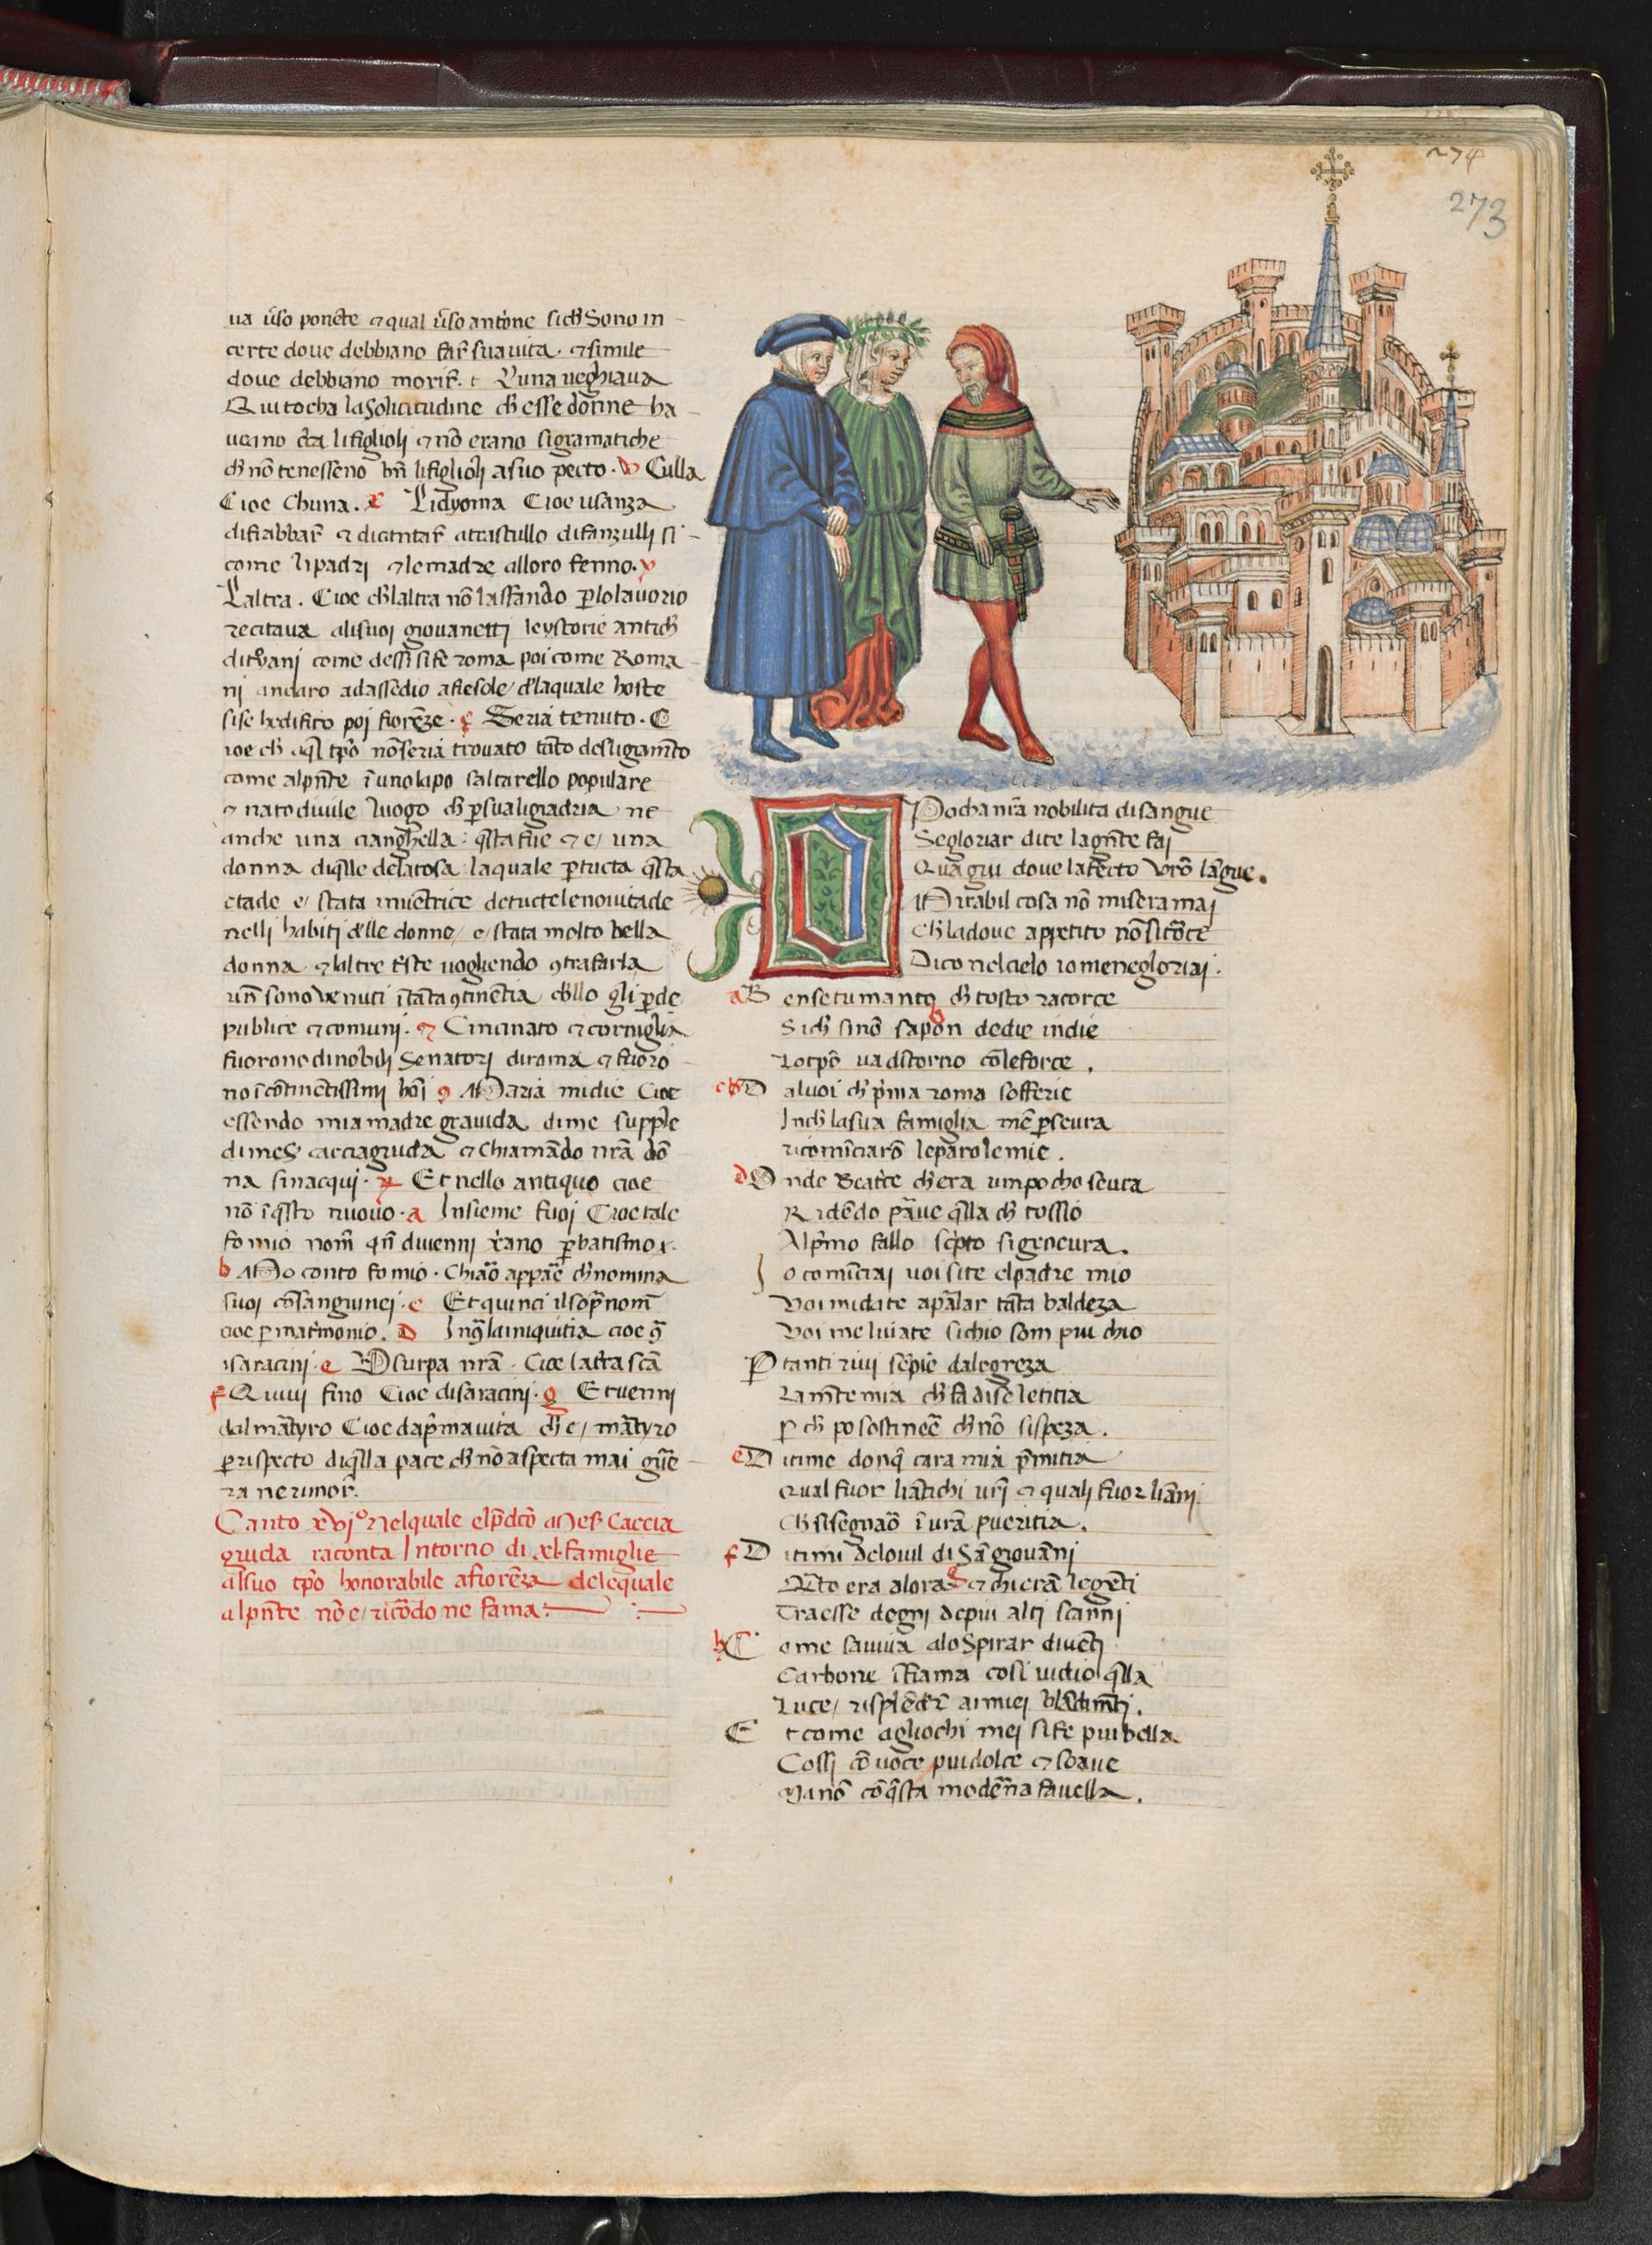 274
273
ua ũso ponẽte ⁊ qual ũso antõne sich̃ Sono in
certe doue debbiano far̃ sua uita · ⁊ simile
doue debbiano morir̃ · t L'una ueghiaua
Qui tocha la Solicitudine ch̃ esse donne ha
ueano li figlioli ⁊ nõ erano si gramatiche
ch̃ nõ tenesseno li figlioli a suo pecto · v Culla
Cioe Chuna . x L'idyoma Cioe usanza
di atrastullo di fanzulli si
come li padri ⁊ le madre alloro fenno · y
L'altra . Cioe ch̃ laltra nõ lassando ꝑ lo lauorio
recitaua ali suoi giouanetti le ystorie antich̃
di come dessi si fe roma poi come Roma
ni andaro ad assedio a fiesole / d'laquale hoste
si se hedifico poi fiorẽze · Seria tenuto · C
ioe ch̃ tp̃o nõ seria trouato tãto
come alpñte ĩ uno lapo saltarello populare
⁊ nato di uile luogo ch̃ ꝑ sua ligiadria ne
anche una cianghella : q̃sta fue ⁊ e / una
donna di q̃lle dela tosa : laquale ꝑ tucta q̃sta
etade e / stata inuẽtrice de tucte le nouitade
nelli habiti d'lle donne / e / stata molto bella
donna ⁊ laltre uogliendo ꝯtrafarla
sono uenuti ĩ tãta ꝯtinẽtia
publice ⁊ comuni · Cincinato ⁊ corniglia
fuorono di nobili Senatori di roma ⁊ fuoro
no ĩ cõtinẽtissimi hoĩ Maria mi die Cioe
essendo mia madre grauida di me
di mes̃ cacciaguida ⁊ chiamãdo nrã dõ
na si nacqui · Et nello antiquo cioe
nõ ĩ q̃sto nuouo · a Insieme fuoi Cioe tale
fo mio nom̃ qñ diuenni xr̃ano ꝑ batismo
b Mo conto fo mio · ch̃ nomina
suoi cõsanguinei · c Et quinci il sop̃nom̃
cioe ꝑ matrimonio . D In q̃la iniquitia cioe
i saracini · e Usurpa nrã · Cioe la t̃ra scã
f Quiui fino Cioe di saracini · g Et uenni
dal mãtyro Cioe da p̃ma uita ch̃ e / mãtyro
ꝑ rispecto di q̃lla pace ch̃ nõ aspecta mai gue
ra ne rimor̃
Canto xvjº Nel quale elp̃dcõ Mes̃ Caccia
guida raconta Intorno di xl · famiglie
al suo tp̃o honorabile a fiorẽza delequale
al pñte nõ e / ricõdo ne fama :
O Pocha nrã nobilita di sangue
Se gloriar di te la gẽte fai
Qua giu doue lafecto vrõ lãgue .
Mirabil cosa nõ mi sera mai
Ch̃ la doue appetito nõ si tõce
Dico nel cielo io me ne gloriai .
a Ben se tu manto ch̃ tosto racorce
Sich̃ si nõ sapõn de die in die
Lo tpõ ua dĩtorno cõ le force .
D al uoi ch̃ p̃ma roma sofferie
In ch̃ la sua famiglia mẽ ꝑseura
ricomĩciarõ le parole mie .
d Onde Beatr̃ce ch̃ era um pocho seura
Ridẽdo parue q̃lla ch̃ tossio
Al p̃mo fallo sc̃pto si geneura .
Io comĩciai uoi site el padre mio
Voi mi date a parlar tãta baldeza
Voi me liuiate si chio som piu chio
P tanti riui sẽpie dalegreza
La mẽte mia ch̃ fa di se letitia
P ch̃ po sostinere ch̃ nõ si speza .
e Ditime donq̃ cara mia p̃mitia
Qual fuor li ãtichi uri ⁊ quali fuor li ãni
Ch̃ si segnarõ ĩ urã pueritia .
f Ditimi delouil di Sã giouãni
Q̃to era alora g ⁊ chi erã le gẽti
Tra esse degni de piu alti scãnni
h Come sauiua alo Spirar di uẽti
Carbone ĩ fiama cosi uidio q̃lla
Luce / risplẽder̃ ai miei blãdimẽti .
Et come agliochi mei si fe piu bella
Cossi cõ uoce piu dolce ⁊ soaue
Ma nõ cõ q̃sta moderna fauella .